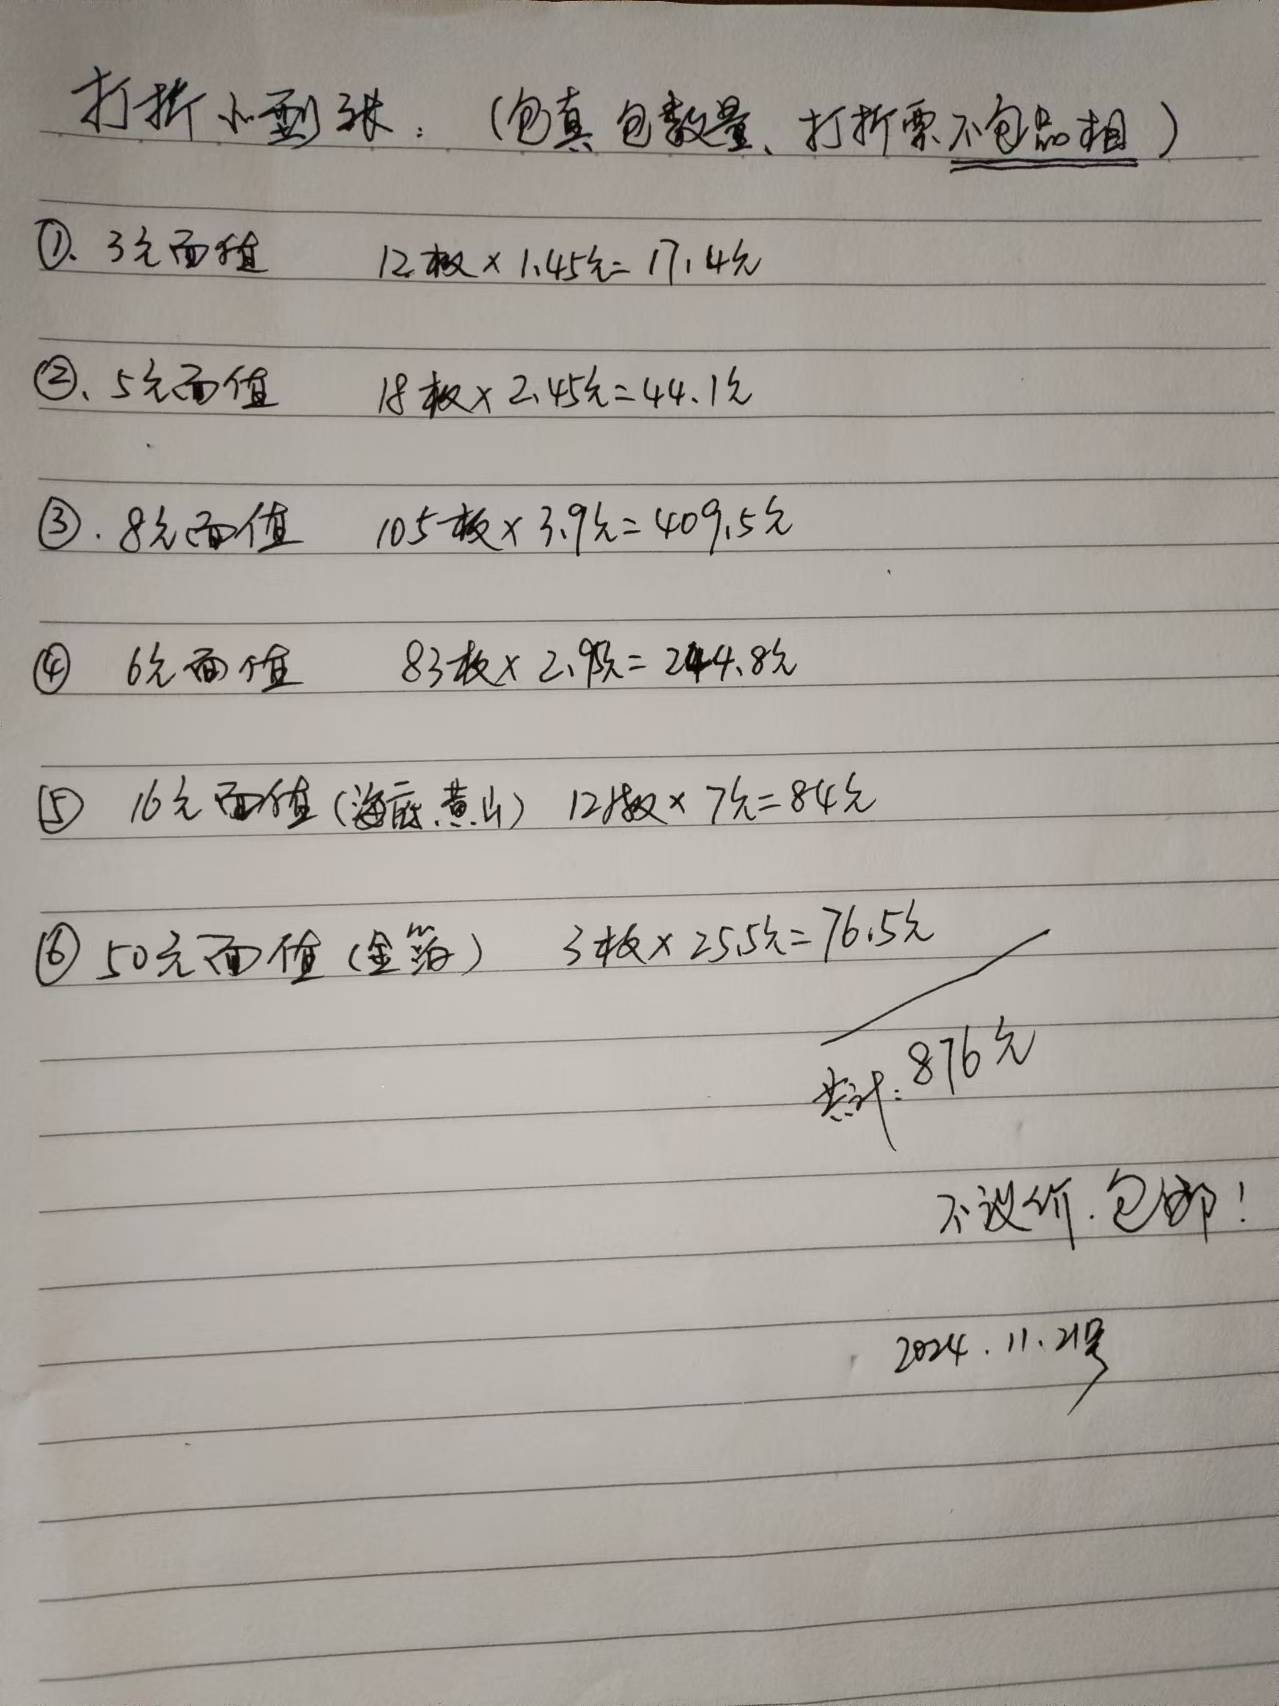 打折小型张：（包真包数量、打折票不包品相）
①、3元面值 12枚×1.45元=17.4元
②、5元面值 18枚×2.45元=44.1元
③.8元面值 105枚×3.9元=409.5元
④ 6元面值 83枚×2.95元=244.8元
⑤ 16元面值（海底.黄山）12枚×7元=84元
⑥ 50元面值（金箔） 3枚×25.5元=76.5元
共计：876元
不议价.包邮！
2024.11.21号